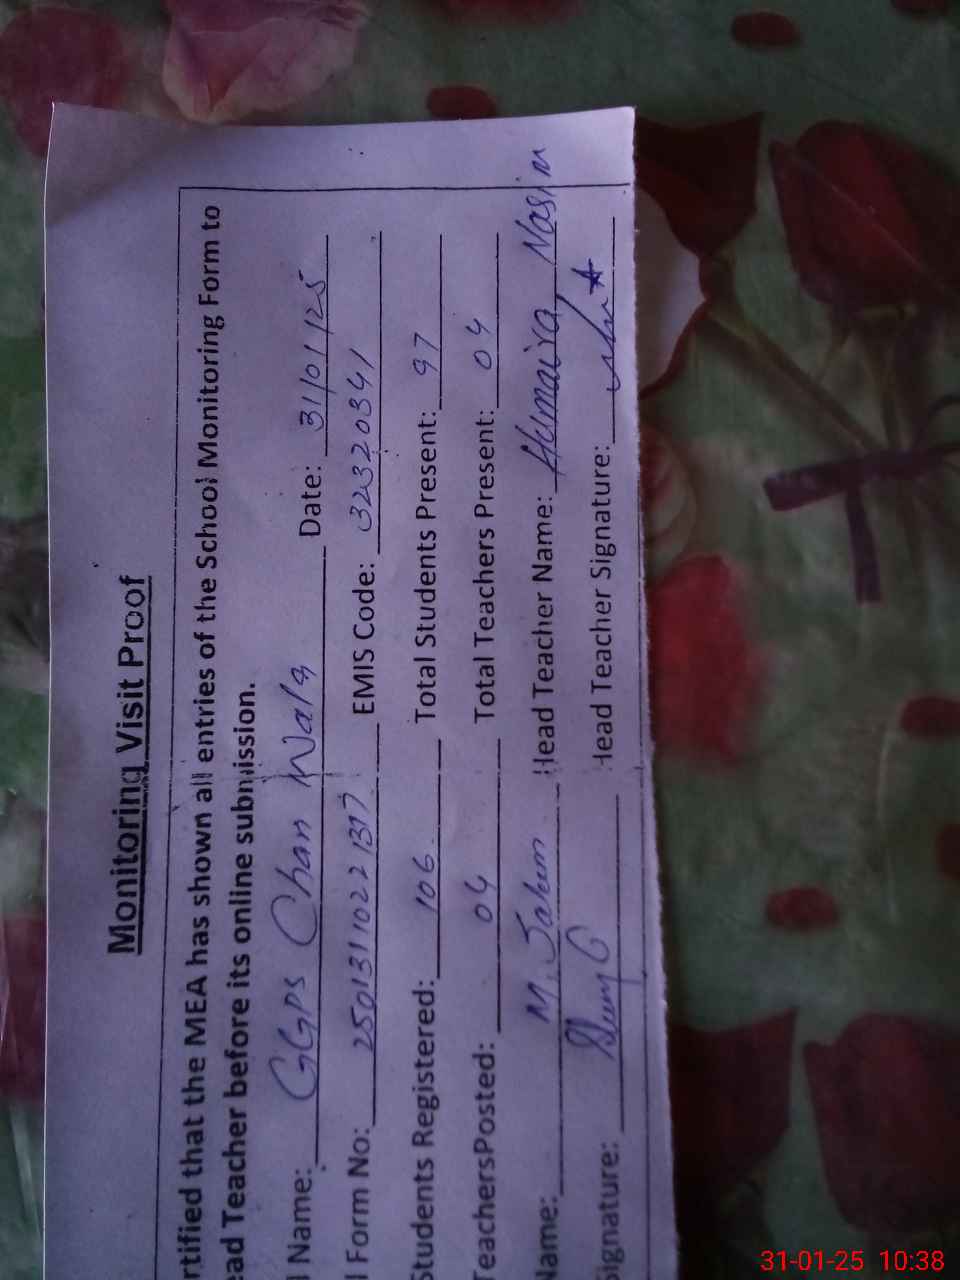 Monitoring Visit Proof
rtified that the MEA has shown all entries of the School Monitoring Form to
ead Teacher before its online submission.
l Name: GGPS Chan Wala Date: 31/01/25
l Form No: 25013110221317 EMIS Code: 32320341
Students Registered: 106 Total Students Present: 97
TeachersPosted: 04 Total Teachers Present: 04
Name: M. Salem Head Teacher Name: Humaira Nasim
Signature: Head Teacher Signature:
31-01-25 10:38